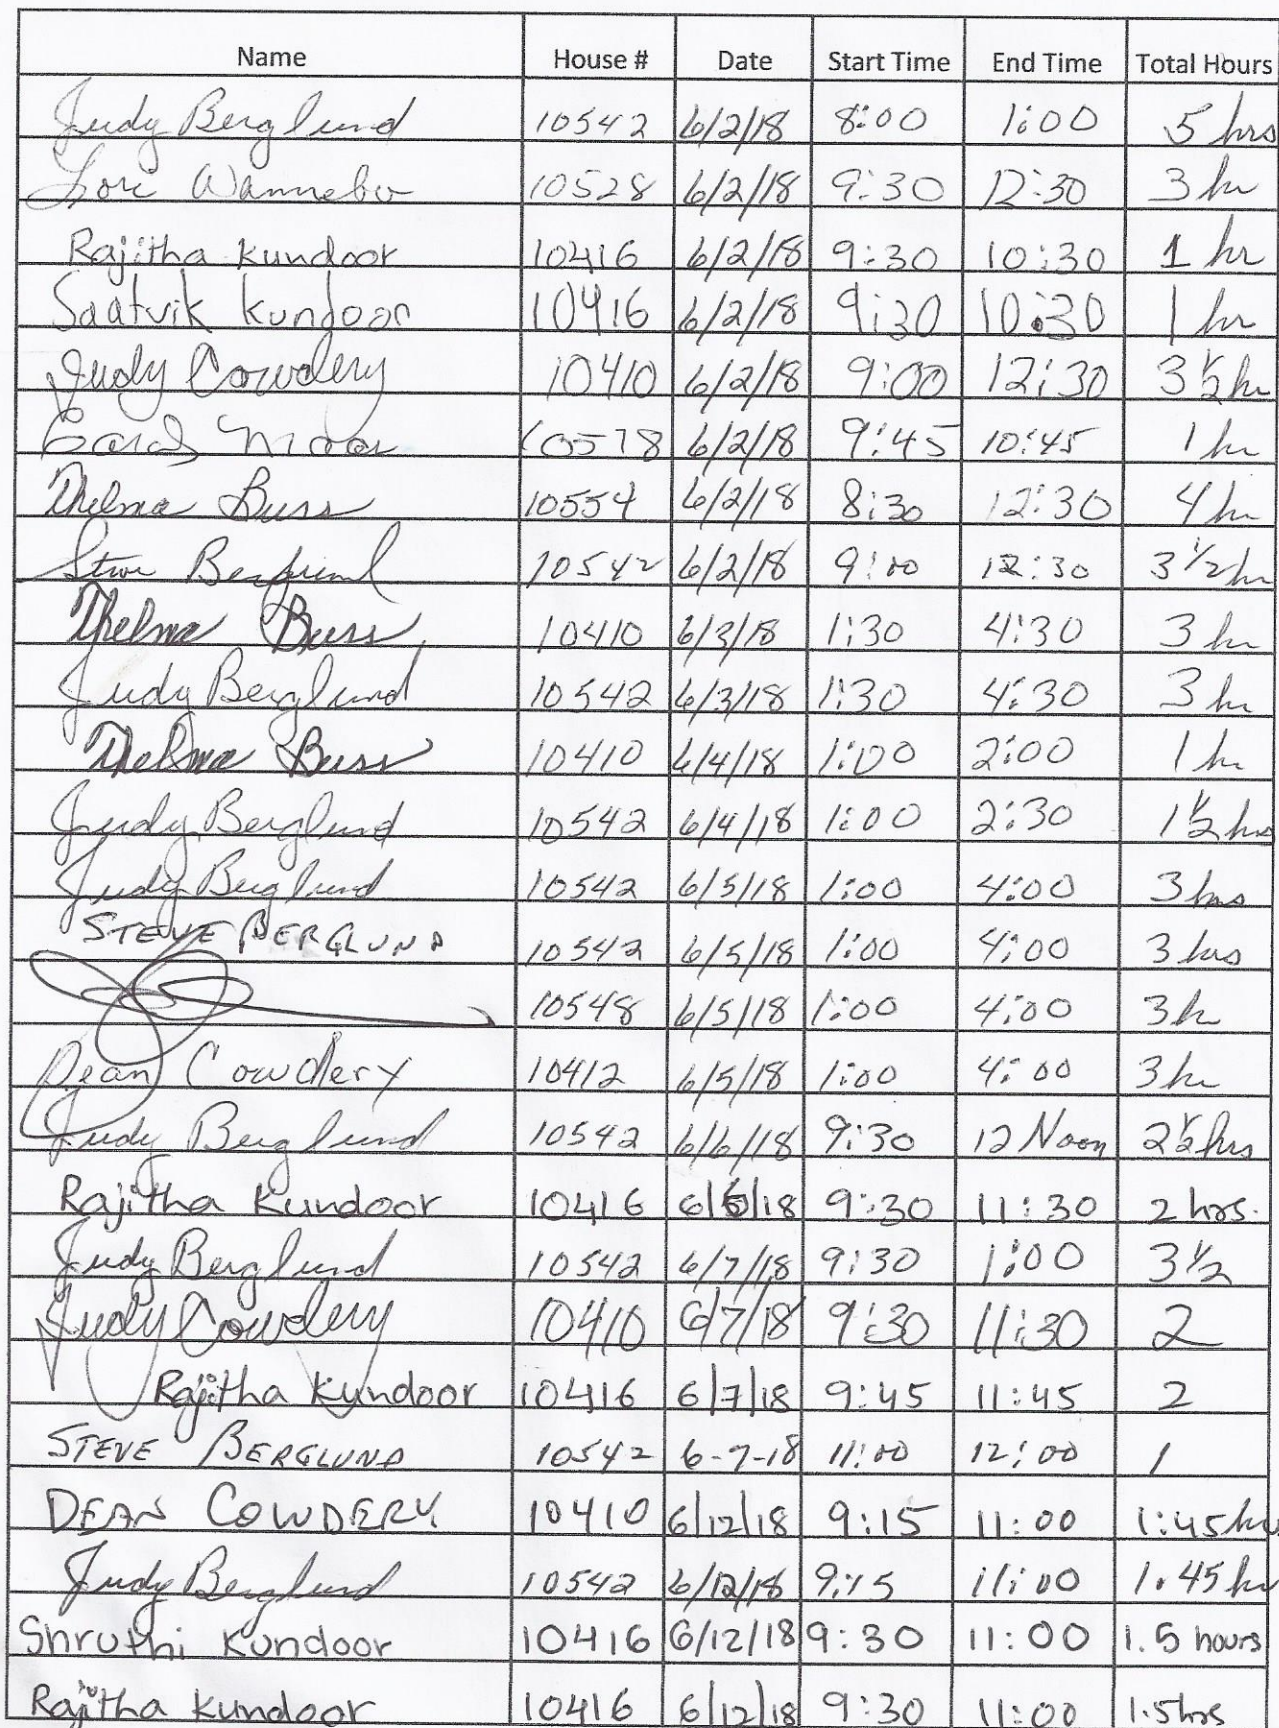 Name House # Date Start Time End Time Total Hours
Judy Berglund 10542 6/2/18 8:00 1:00 5 hrs
Lori Wannebo 10528 6/2/18 9:30 12:30 3 hr
Rajitha Kundoor 10416 6/2/18 9:30 10:30 1 hr
Saatvik Kundoor 10416 6/2/18 9:30 10:30 1 hr
Judy Cowdery 10410 6/2/18 9:00 12:30 3 1/2 hr
Carol Moar 10578 6/2/18 9:45 10:45 1 hr
Thelma Buss 10554 6/2/18 8:30 12:30 4 hr
Steve 10542 6/2/18 9:00 12:30 3 1/2 hr
Thelma Buss 10410 6/3/18 1:30 4:30 3 hr
Judy Berglund 10542 6/3/18 1:30 4:30 3 hr
Thelma Buss 10410 6/4/18 1:00 2:00 1 hr
Judy Berglund 10542 6/4/18 1:00 2:30 1 1/2 hrs
Judy Berglund 10542 6/5/18 1:00 4:00 3 hrs
STEVE BERGLUND 10542 6/5/18 1:00 4:00 3 hrs
10548 6/5/18 1:00 4:00 3 hr
Dean Cowdery 10412 6/5/18 1:00 4:00 3 hr
Judy Berglund 10542 6/6/18 9:30 12 Noon 2 1/2 hrs
Rajitha Kundoor 10416 6/6/18 9:30 11:30 2 hrs.
Judy Berglund 10542 6/7/18 9:30 1:00 3 1/2
Judy Cowdery 10410 6/7/18 9:30 11:30 2
Rajitha Kundoor 10416 6/7/18 9:45 11:45 2
STEVE BERGLUND 10542 6-7-18 11:00 12:00 1
DEAN COWDERY 10410 6/12/18 9:15 11:00 1:45 hrs
Judy Berglund 10542 6/12/18 9:15 11:00 1.45 hr
Shruthi Kundoor 10416 6/12/18 9:30 11:00 1.5 hours
Rajitha Kundoor 10416 6/12/18 9:30 11:00 1.5 hrs